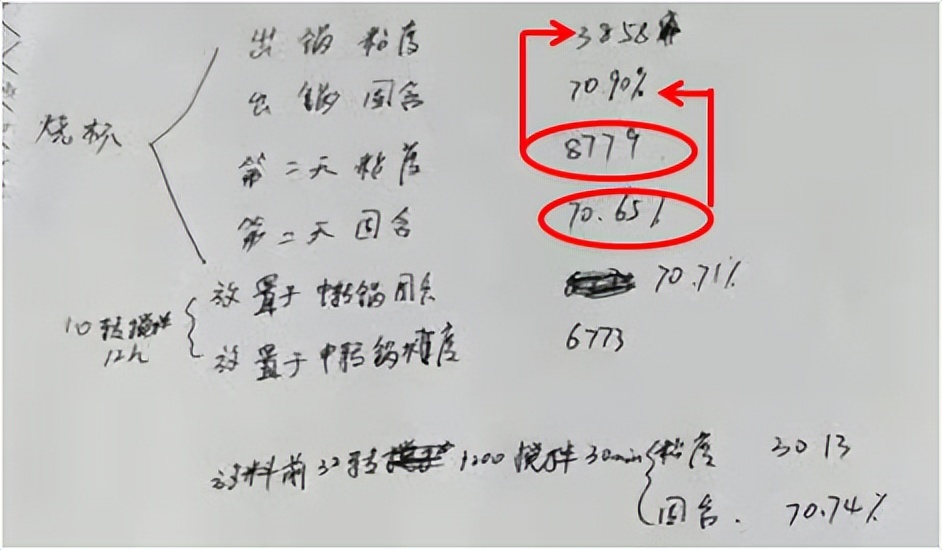 出锅粘度 3858
烧杯 出锅固含 70.90%
第二天粘度 8779
第二天固含 70.65%
10转搅拌 12h 放置于中转锅固含 70.71%
放置于中转锅粘度 6773
放料前32转 1200搅拌30min 粘度 3013
固含. 70.74%